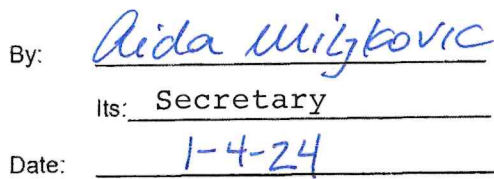 By: Aida Miljkovic
Its: Secretary
Date: 1-4-24